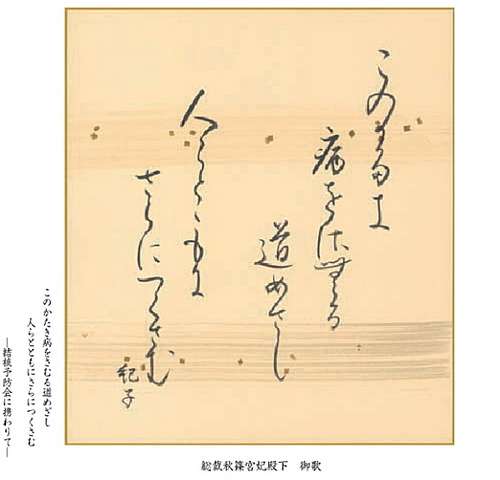 このかたき
病をさむる
道めさし
人らとともに
さらにつくさむ
紀子
このかたき病をさむる道めざし
人らとともにさらにつくさむ
―結核予防会に携わりて―
総裁秋篠宮妃殿下　御歌